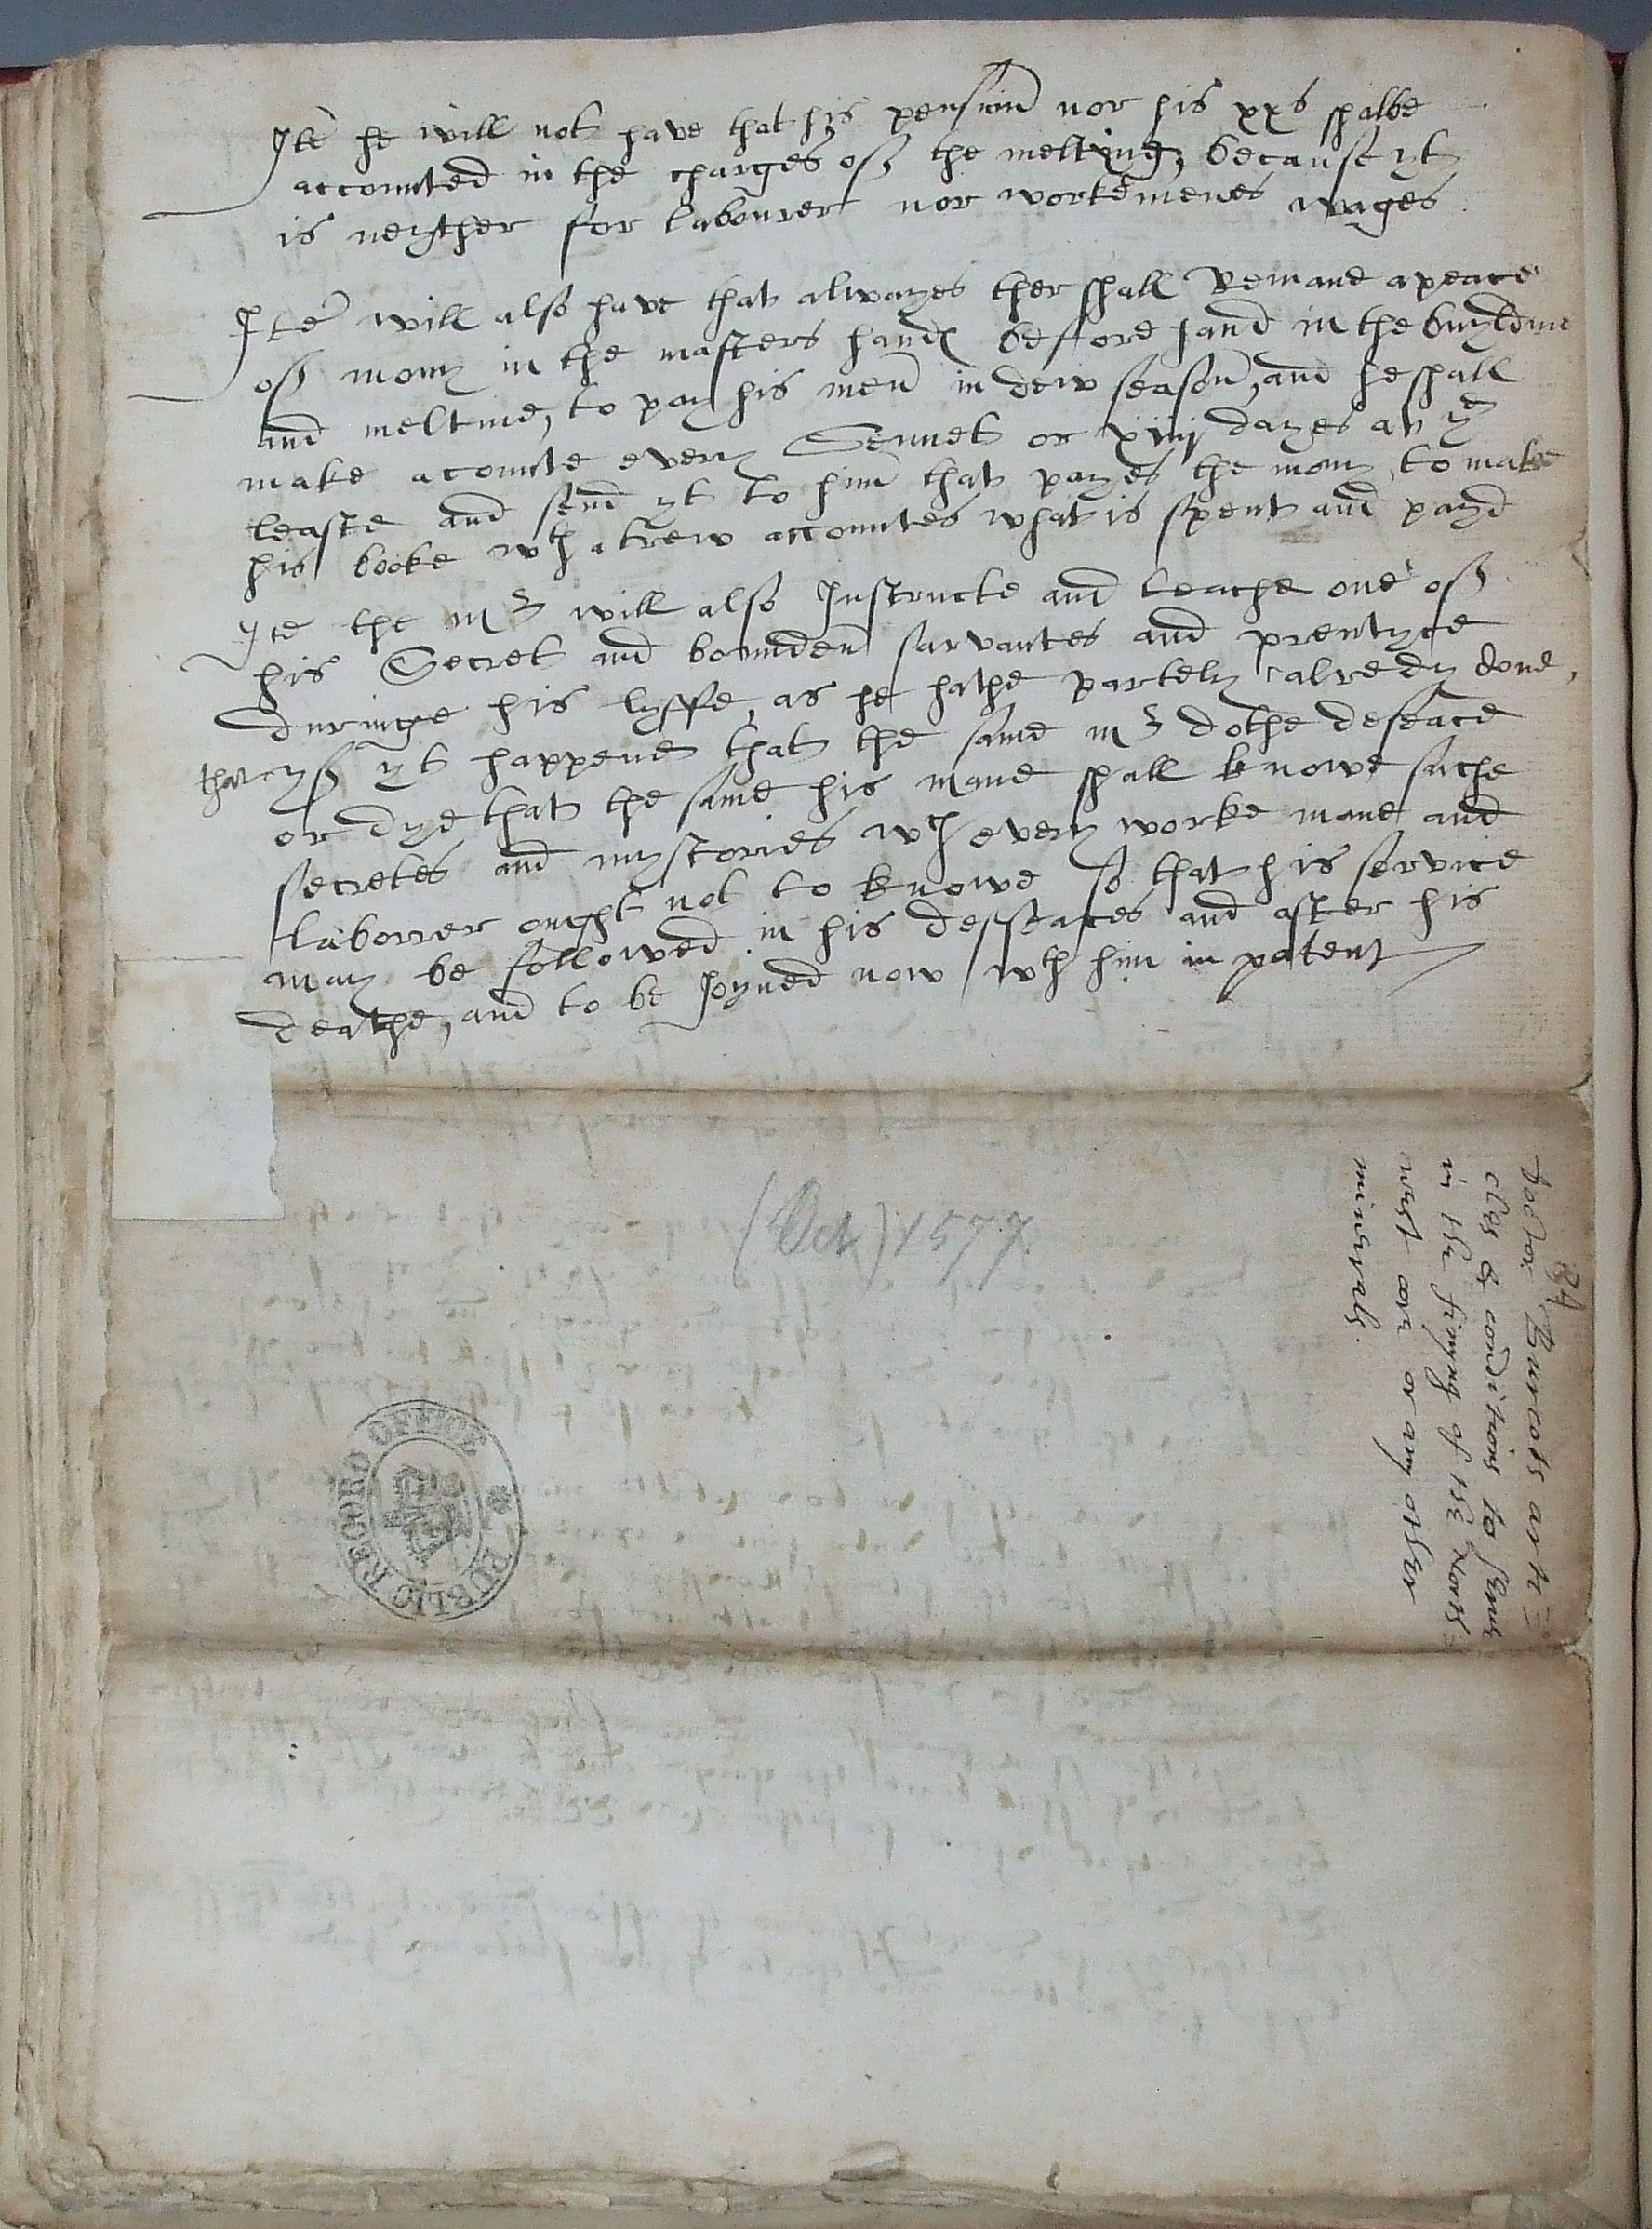 Itē he will not have that his pension nor his xxs shalbe
accounted in the charges off the meltyng, because yt
is neyther for labourer nor workemenes wages
Itē will also have that alwayes ther shall Remane a peace
off mony in the masters hand before hand in the buyldine
and meltine, to pay his men in dew season, and he shall
make acounte every Sennet or xiiij dayes at ye
leaste and send yt to him that payes the mony, to make
his booke wth a trew accountes what is spent and payd
Ite the mr will also Instructe and teache one off
his Secret and bounden sarvantes and prentyce
duringe his lyffe, as he hathe partely alredy done,
that yff yt happenes that the same mr dothe deseace
or dye that the same his mane shall knowe suche
secretes and mystories wch every worke mane and
laborrer ought not to knowe so that his service
may be followed in his desseaces and after his
deathe, and to be Joyned now wth him in patent
(Oct) 1577
34
doctor Burcots arti=
cles & conditions to serve
in the fynyng of the North=
west ore or any other
minerals.
PUBLIC RECORD OFFICE